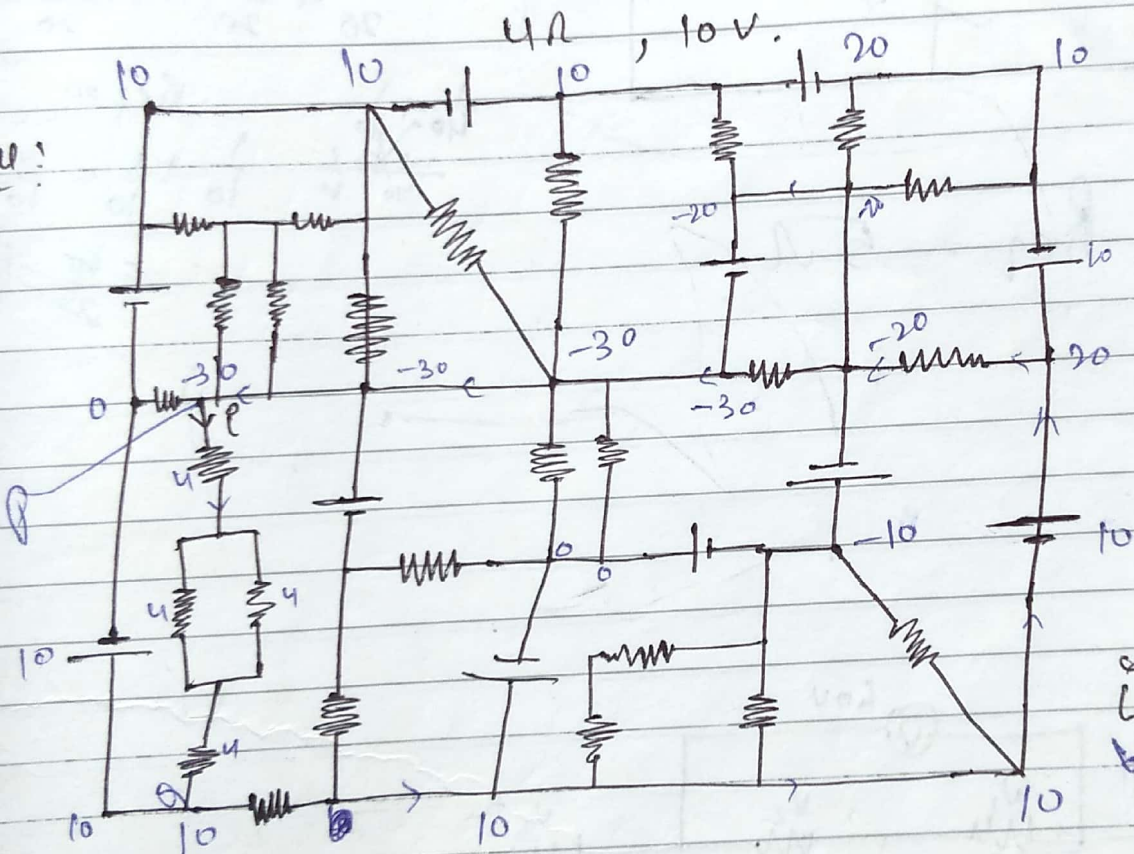 4Ω , 10V.
10 10 10 20 10
-20 20 10
-30 -20
0 -30 -30 -30 20
P
4
P
0 0 -10 10
4 4
10
4
Q
10 10 10 10